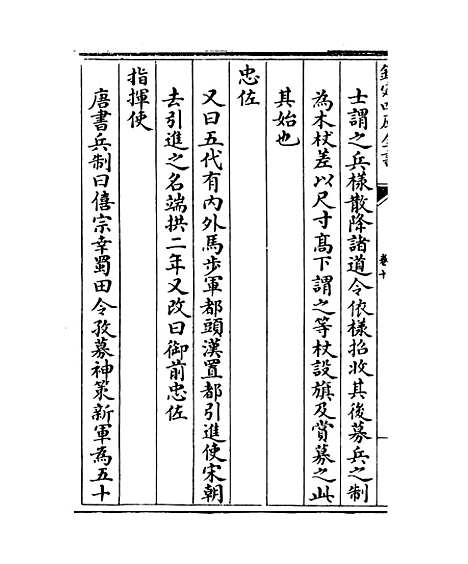 欽定四庫全書
卷十
士謂之兵樣散降諸道令依樣招收其後募兵之制
為木杖差以尺寸髙下謂之等杖設旗及賞募之此
其始也
忠佐
又曰五代有内外馬步軍都頭漢置都引進使宋朝
去引進之名端拱二年又改曰御前忠佐
指揮使
唐書兵制曰僖宗幸蜀田令孜募神策新軍為五十